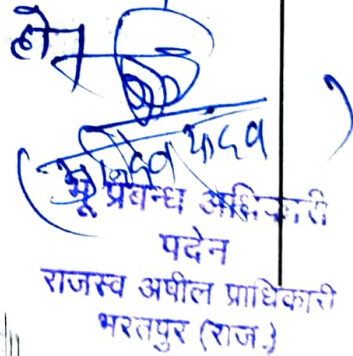 हो।
यादव
भू प्रबन्ध अधिकारी
पदेन
राजस्व अपील प्राधिकारी
भरतपुर (राज.)